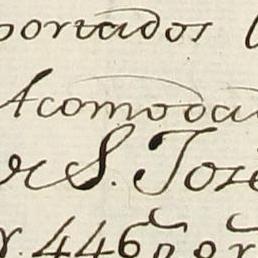 portados
Acomoda
S. Jose
446